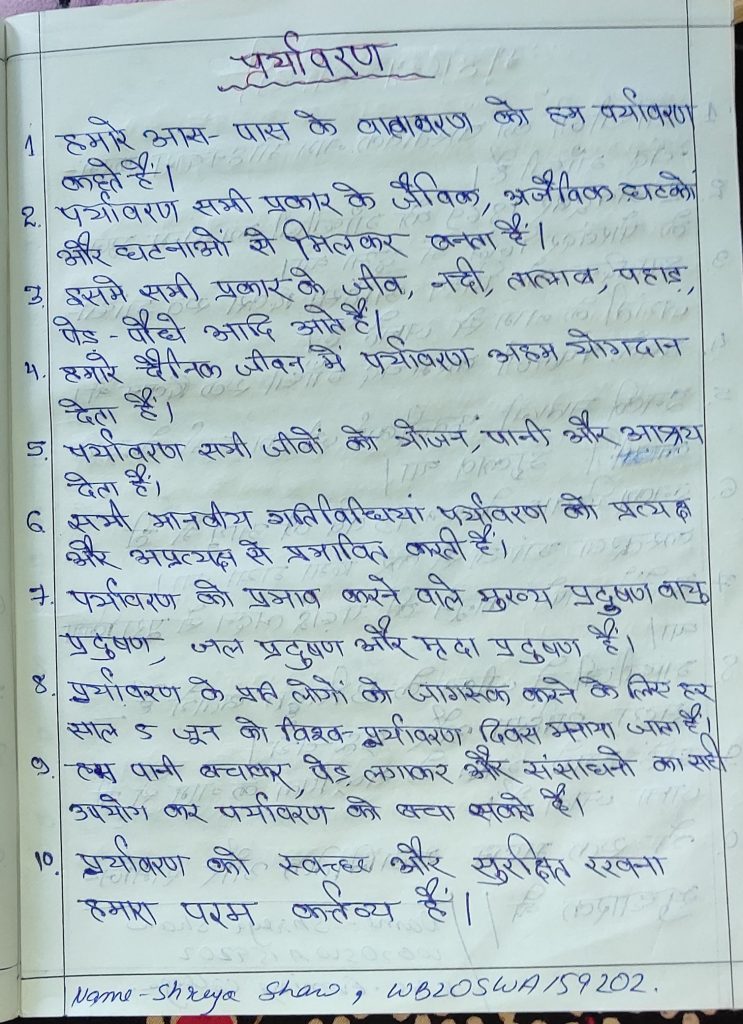 पर्यावरण
1 हमारे आस- पास के वातावरण को हम पर्यावरण
कहते हैं।
2. पर्यावरण सभी प्रकार के जैविक, अजैविक घटको
और घटनाओं से मिलकर बनता है।
3 इसमे सभी प्रकार के जीव, नदी, तालाब, पहाड़,
पेड़ - पौधे आदि आते है।
4. हमारे दैनिक जीवन में पर्यावरण अहम योगदान
देता हैं।
5. पर्यावरण सभी जीवों को भोजन, पानी और आश्रय
देता हैं।
6 सभी मानवीय गतिविधियां पर्यावरण को प्रत्यक्ष
और अप्रत्यक्ष से प्रभावित करती हैं।
7. पर्यावरण को प्रभाव करने वाले मुख्य प्रदुषण वायु
प्रदुषण, जल प्रदुषण और मृदा प्रदुषण हैं।
8. पर्यावरण के प्रति लोगों को जागरूक करने के लिए हर
साल 5 जून को विश्व- पर्यावरण दिवस मनाया जाता है।
9. हम पानी बचाकर, पेड़ लगाकर और संसाधनो का सही
उपयोग कर पर्यावरण को बचा सकते है।
10. पर्यावरण को स्वच्छ और सुरक्षित रखना
हमारा परम कर्तव्य हैं।
Name - Shreya Shaw, WB20SWA159202.